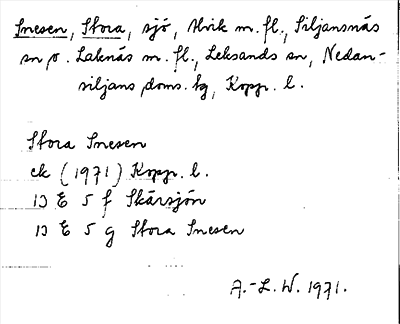 Snesen, Stora, sjö, Alvik m. fl., Siljansnäs
sn o. Laknäs m. fl., Leksands sn, Nedan-
siljans doms. hg, Kopp. l.
Stora Snesen
ek (1971) Kopp. l.
13 E 5 f Skärsjön
13 E 5 g Stora Snesen
A.-L. W. 1971.